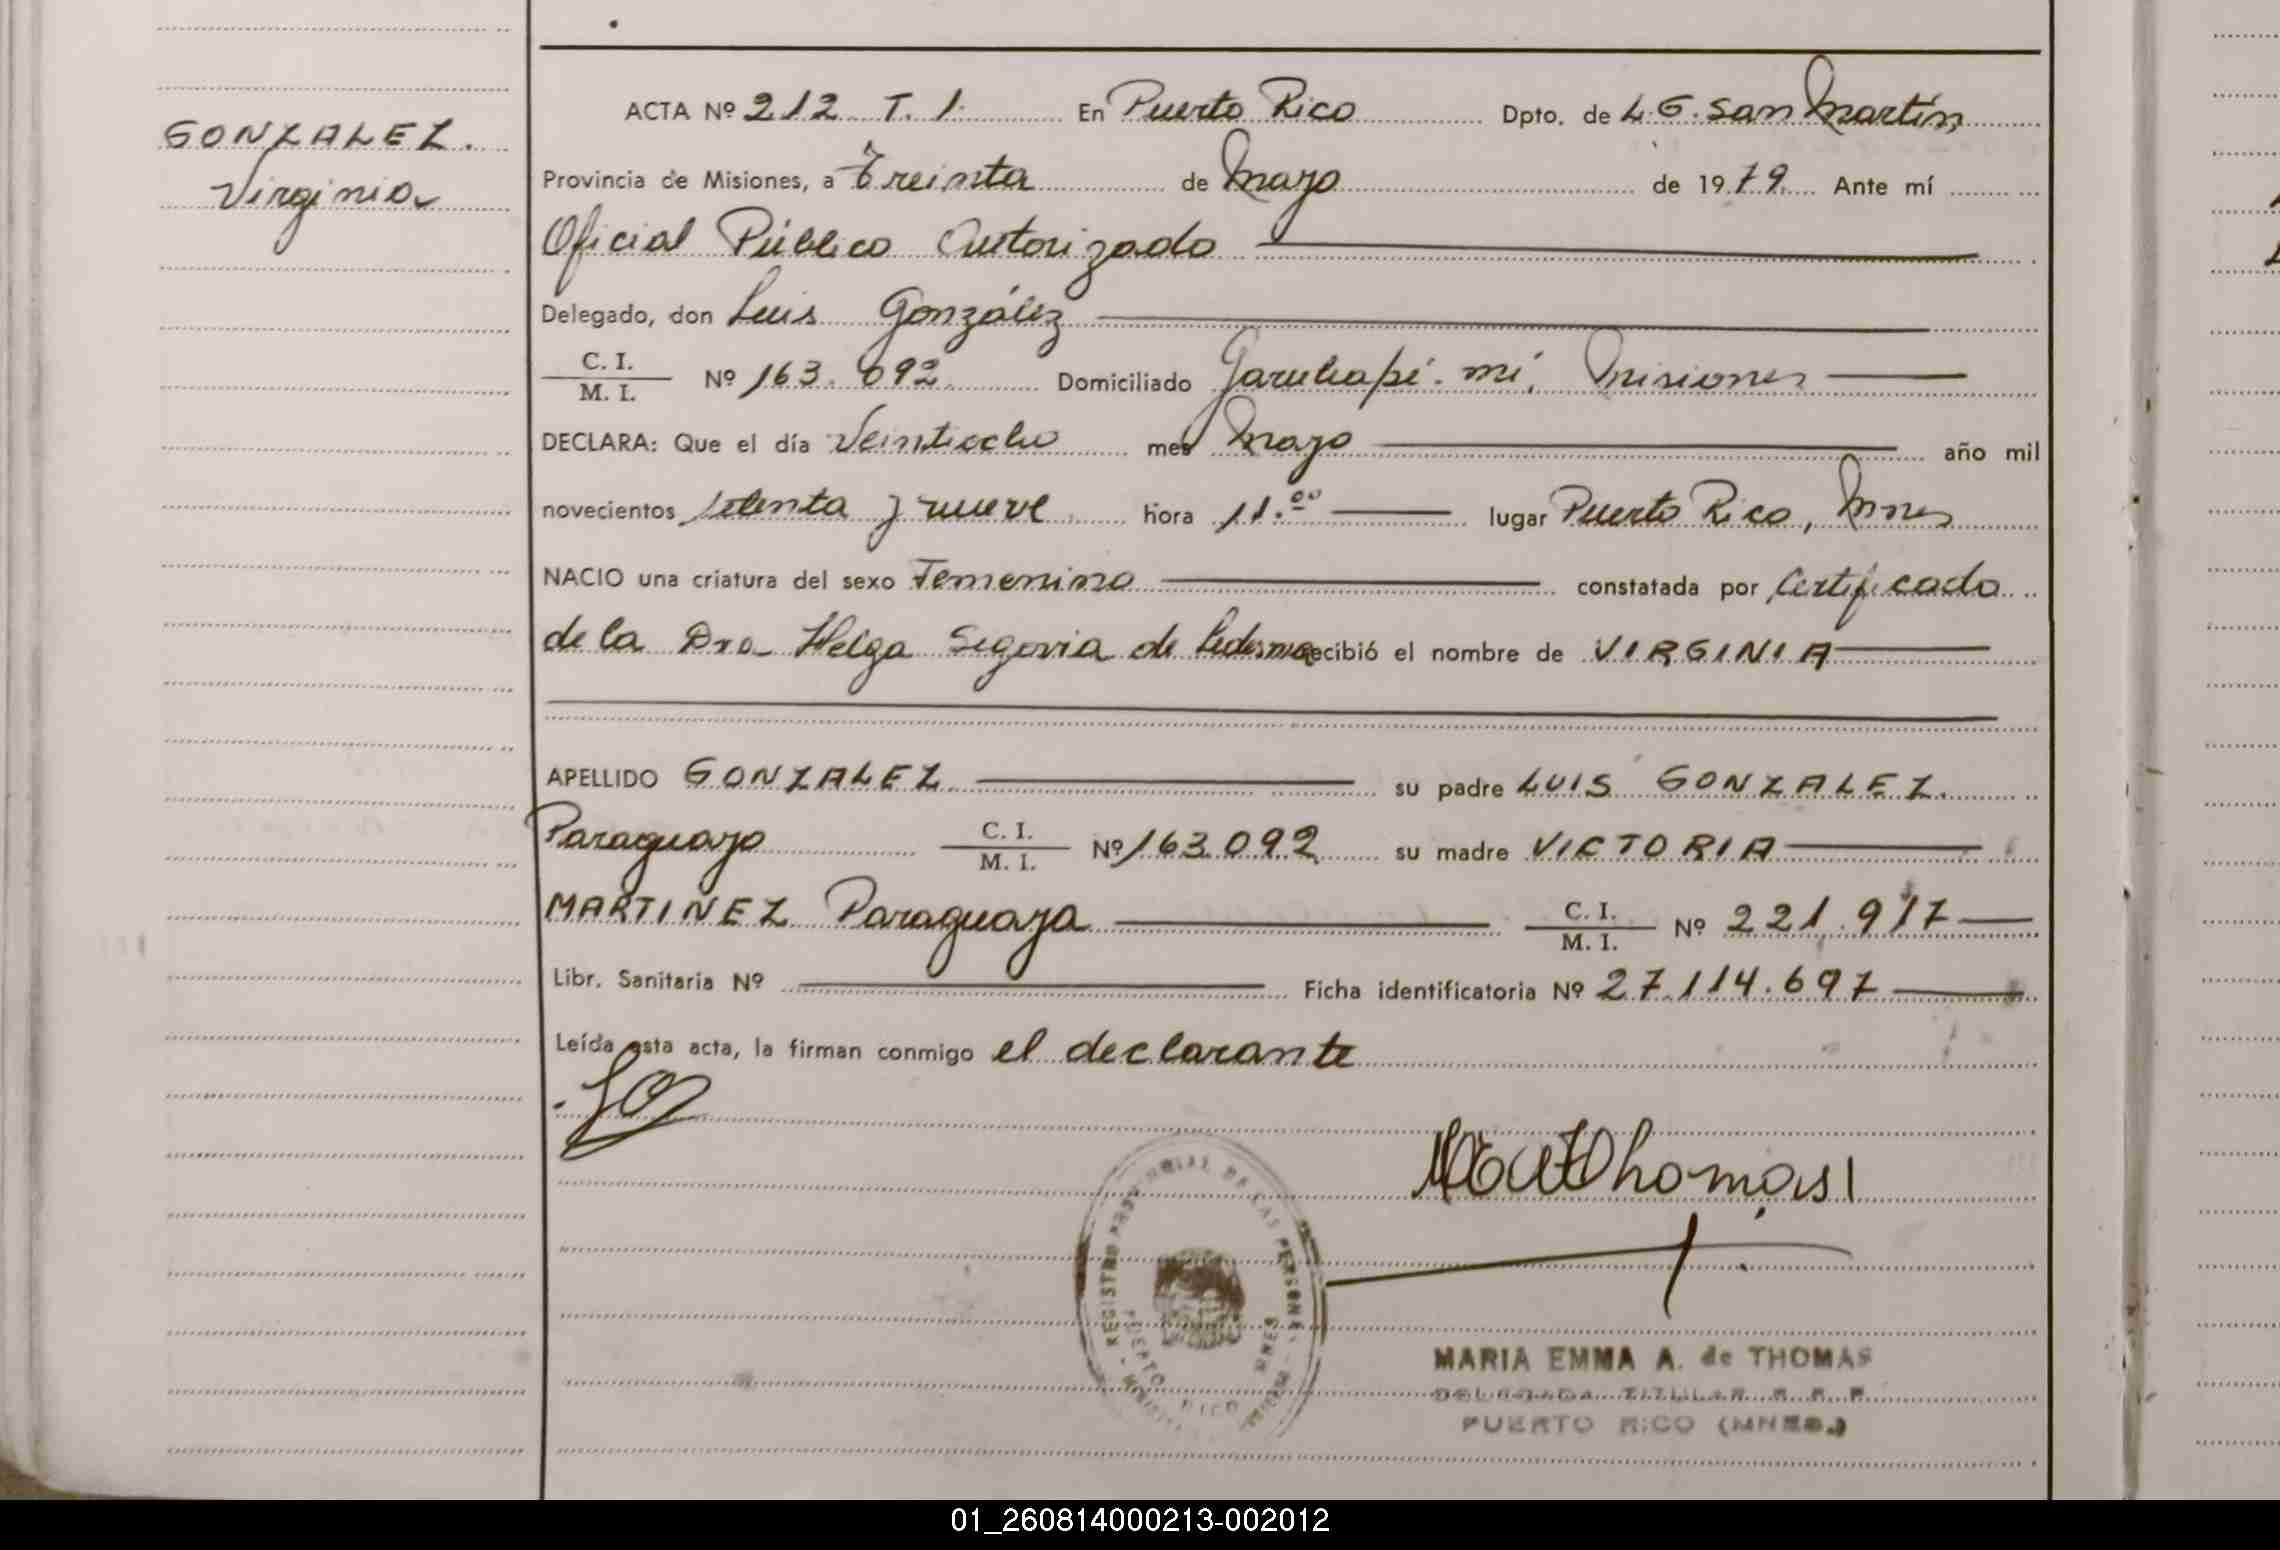 GONZALEZ.
Virginia
ACTA Nº 212 T. 1. En Puerto Rico Dpto. de L. G. San Martín
Provincia de Misiones, a Treinta de Mayo de 1979. Ante mí
Oficial Público Autorizado
Delegado, don Luis González
C. I.
M. I. Nº 163.092 Domiciliado Garuhapé-mí, Misiones
DECLARA: Que el día Veintiocho mes Mayo año mil
novecientos setenta y nueve hora 11.00 lugar Puerto Rico, Mnes
NACIO una criatura del sexo Femenino constatada por Certificado
de la Dra Helga Segovia de Ledesma recibió el nombre de VIRGINIA
APELLIDO GONZALEZ su padre LUIS GONZALEZ.
Paraguayo C. I.
M. I. Nº 163.092 su madre VICTORIA
MARTINEZ Paraguaya C. I.
M. I. Nº 221.917
Libr. Sanitaria Nº Ficha identificatoria Nº 27.114.697
Leída esta acta, la firman conmigo el declarante
REGISTRO PROVINCIAL DE LAS PERSONAS - MISIONES
PUERTO RICO MNES
MARIA EMMA A. de THOMAS
DELEGADA TITULAR R. R. P.
PUERTO RICO (MNES.)
01_260814000213-002012